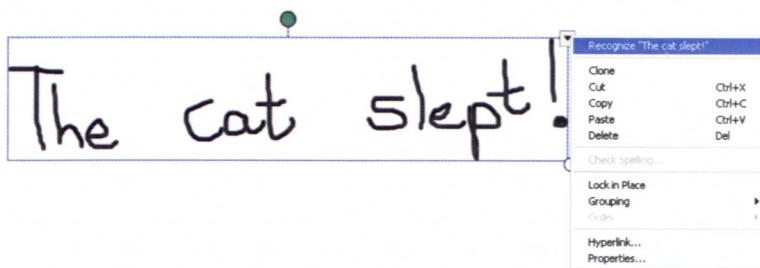 The cat slept!
Recognize "The cat slept!"
Clone
Cut Ctrl+X
Copy Ctrl+C
Paste Ctrl+V
Delete Del
Check Spelling...
Lock in Place
Grouping
Order
Hyperlink...
Properties...